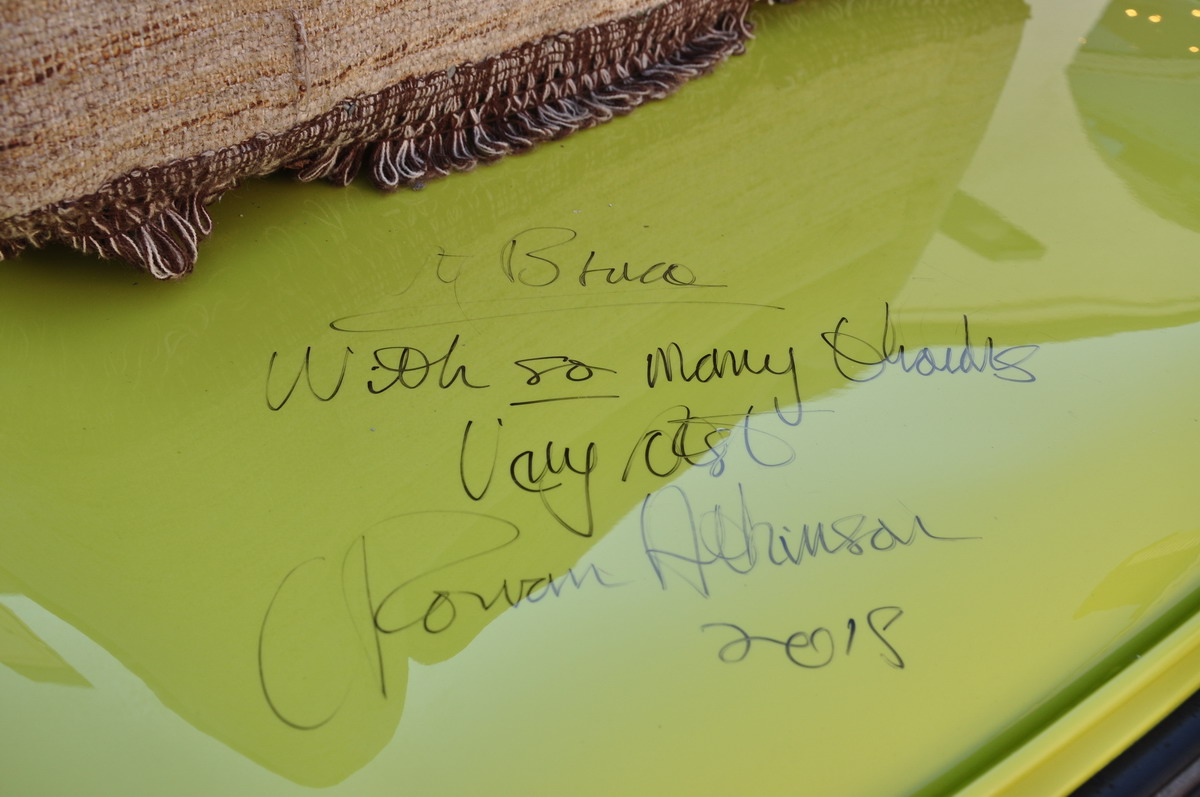 Bruce
With so many thanks
Very best
Rowan Atkinson
2018